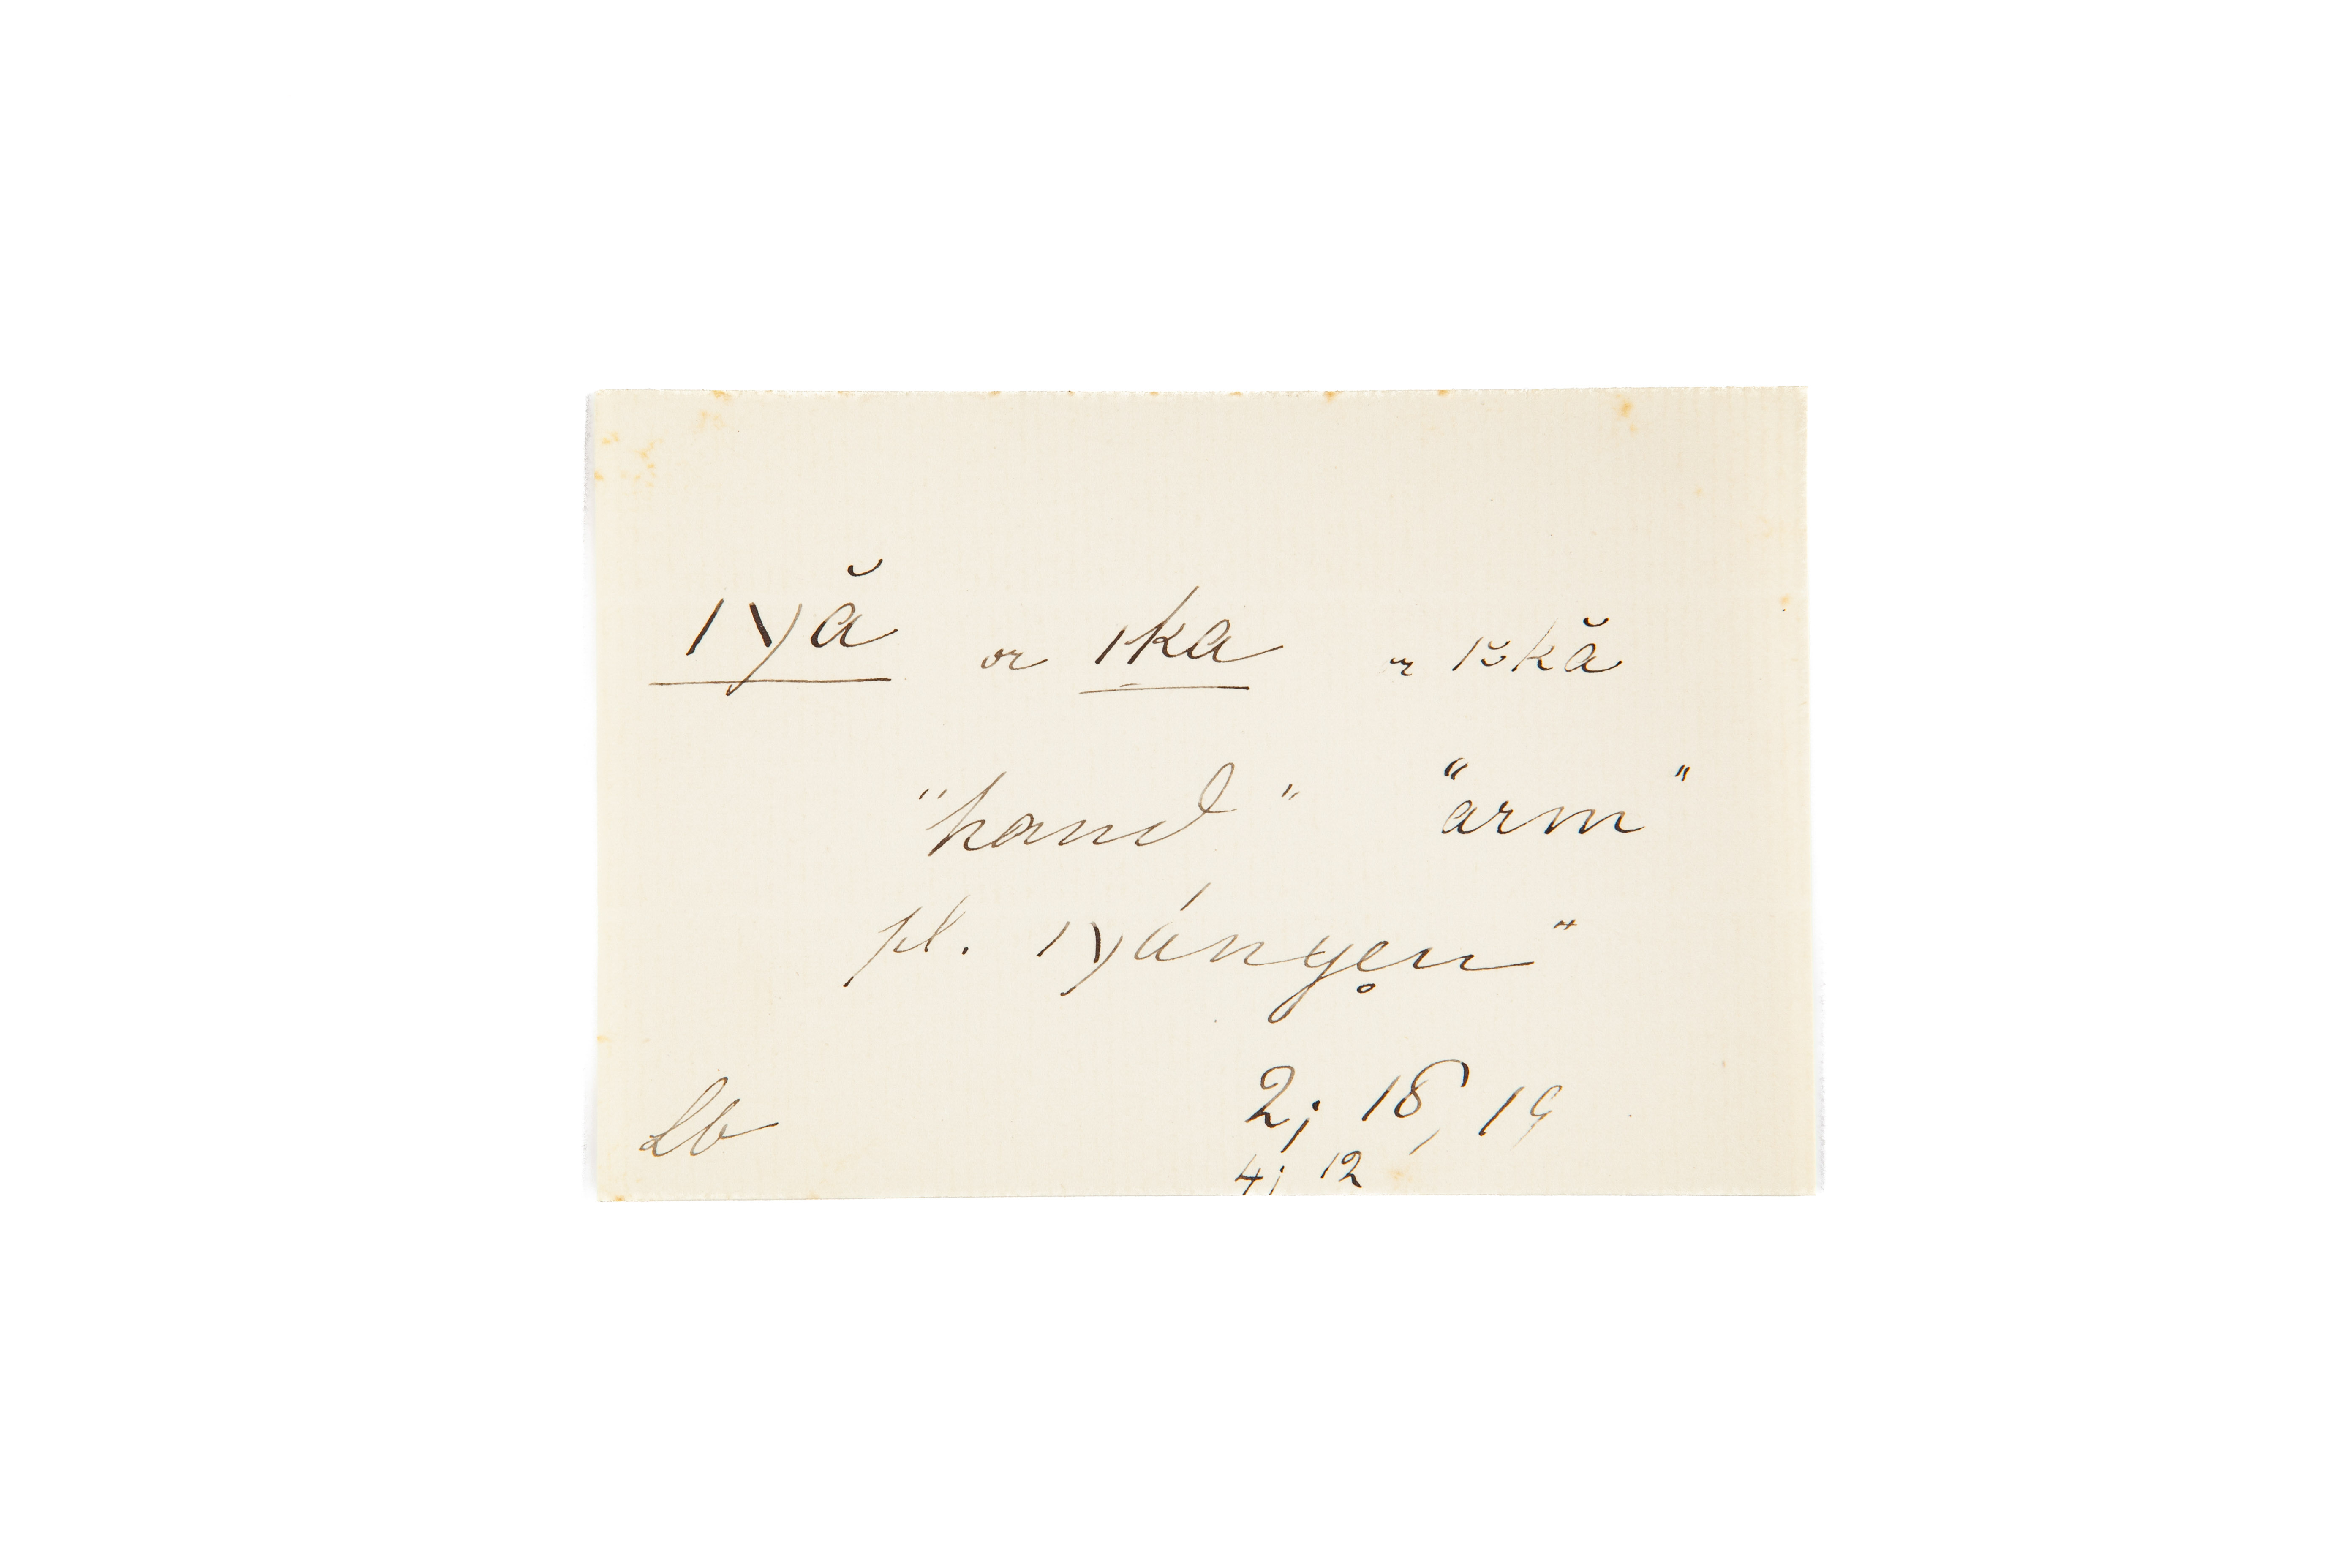 |χă or |ka or |ꞈkă
"hand" "arm"
pl. |χányen̥"
Lb 2; 18, 19
4; 12